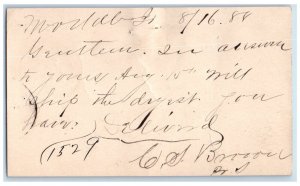 8/16.88
Gentlem. In answer
to yours Aug. 15th will
ship the dryest you
have.
(1529
C. S. Brown